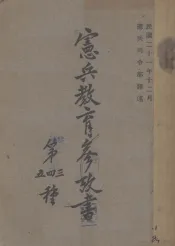 民國二十一年十二月
憲兵司令部編
憲兵教育參攷書
第三四五種